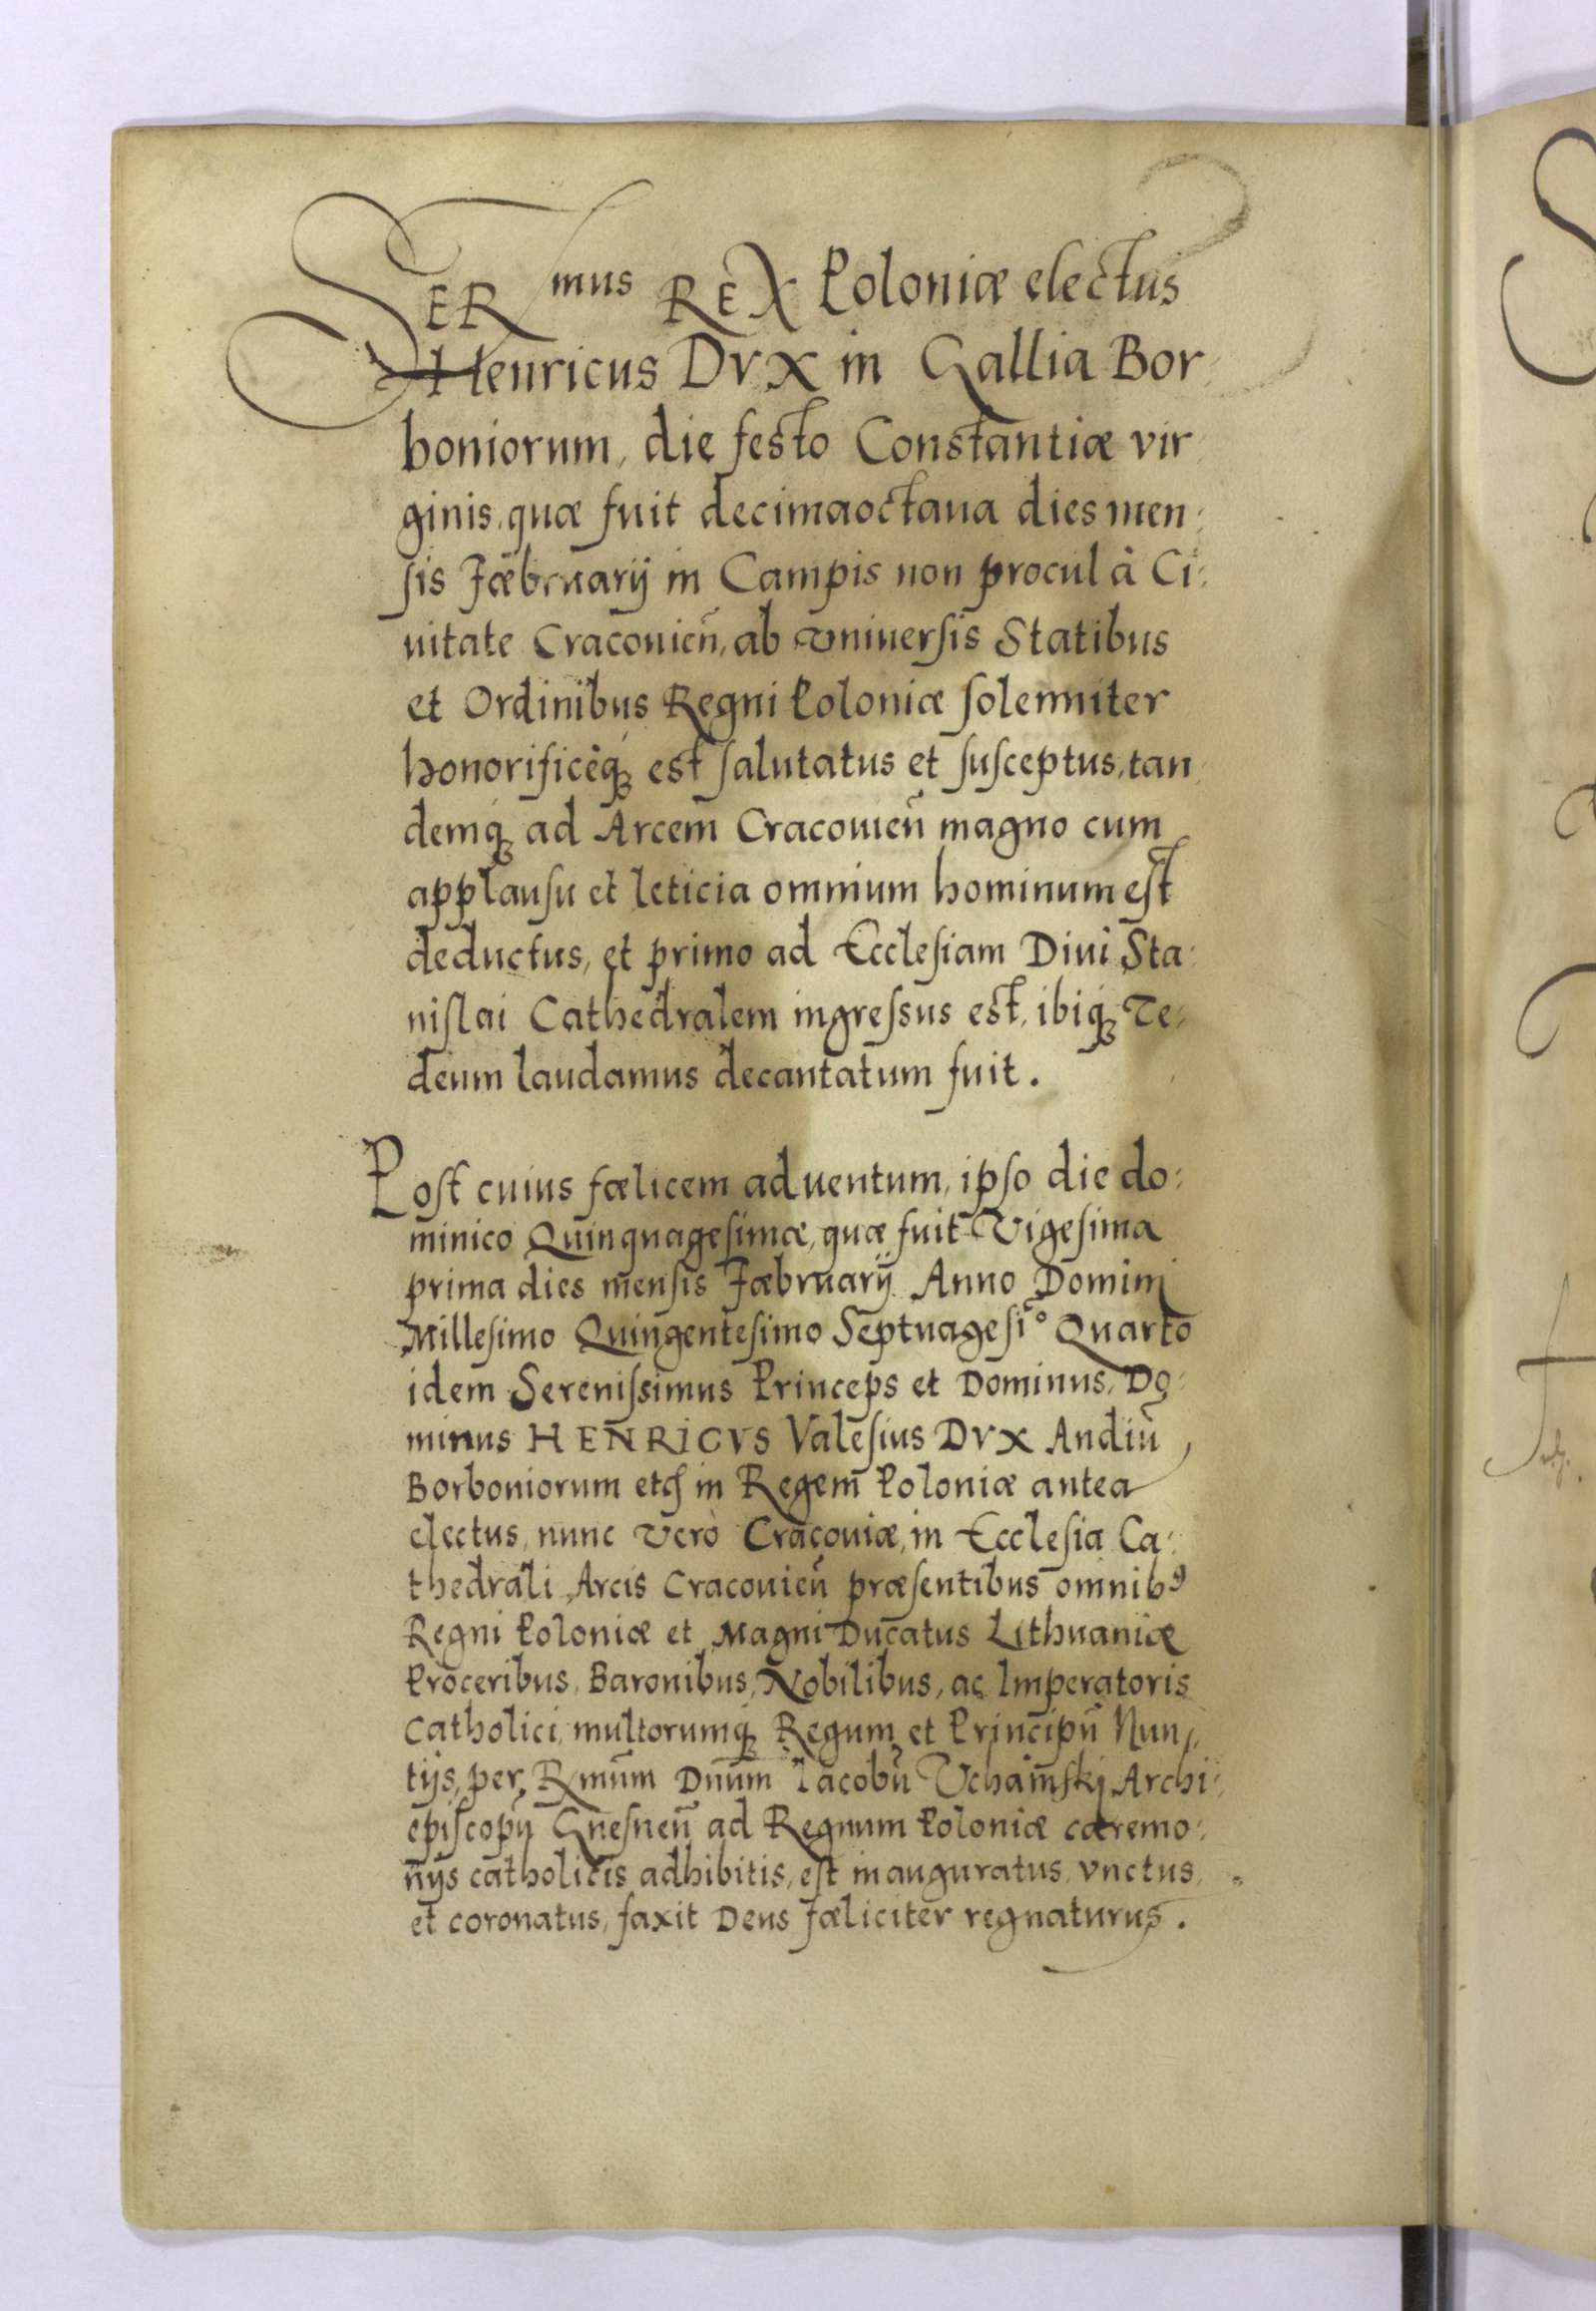 SER mus REX Poloniæ electus
Henricus DVX in Gallia Bor:
boniorum, die festo Constantiæ vir:
ginis, quæ fuit decimaoctaua dies men:
sis Fæbruarij in Campis non procul à Ci:
uitate Cracouieñ, ab vniuersis Statibus
et Ordinibus Regni Poloniæ solenniter
honorificèq; est salutatus et susceptus, tan:
demq; ad Arcem Cracouieñ magno cum
applausu et leticia omnium hominum est
deductus, et primo ad Ecclesiam Diui Sta:
nislai Cathedralem ingressus est, ibiq; Te:
deum laudamus decantatum fuit.
Post cuius fœlicem aduentum, ipso die do:
minico Quinquagesimæ, quæ fuit Vigesima
prima dies mensis Fæbruarij. Anno Domini
Millesimo Quingentesimo Septuagesi͂º Quarto
idem Serenissimus Princeps et Dominus, Do:
minus HENRICVS Valesius DVX Andiũ,
Borboniorum etc̃ in Regem Poloniæ antea
electus, nunc verò Cracouiæ, in Ecclesia Ca:
thedrali Arcis Cracouieñ præsentibus omnibꝰ
Regni Poloniæ et Magni Ducatus Lithuaniæ
Proceribus, Baronibus, Nobilibus, ac Imperatoris
Catholici, multorumq; Regum et Principũ Nun:
tijs, per Rm̃um Dn̄um Iacobũ Vchański Archi:
episcopũ Gnesneñ ad Regnum Poloniæ cæremo:
nijs catholicis adhibitis, est inauguratus, vnctus,
et coronatus, faxit Deus fæliciter regnaturus.